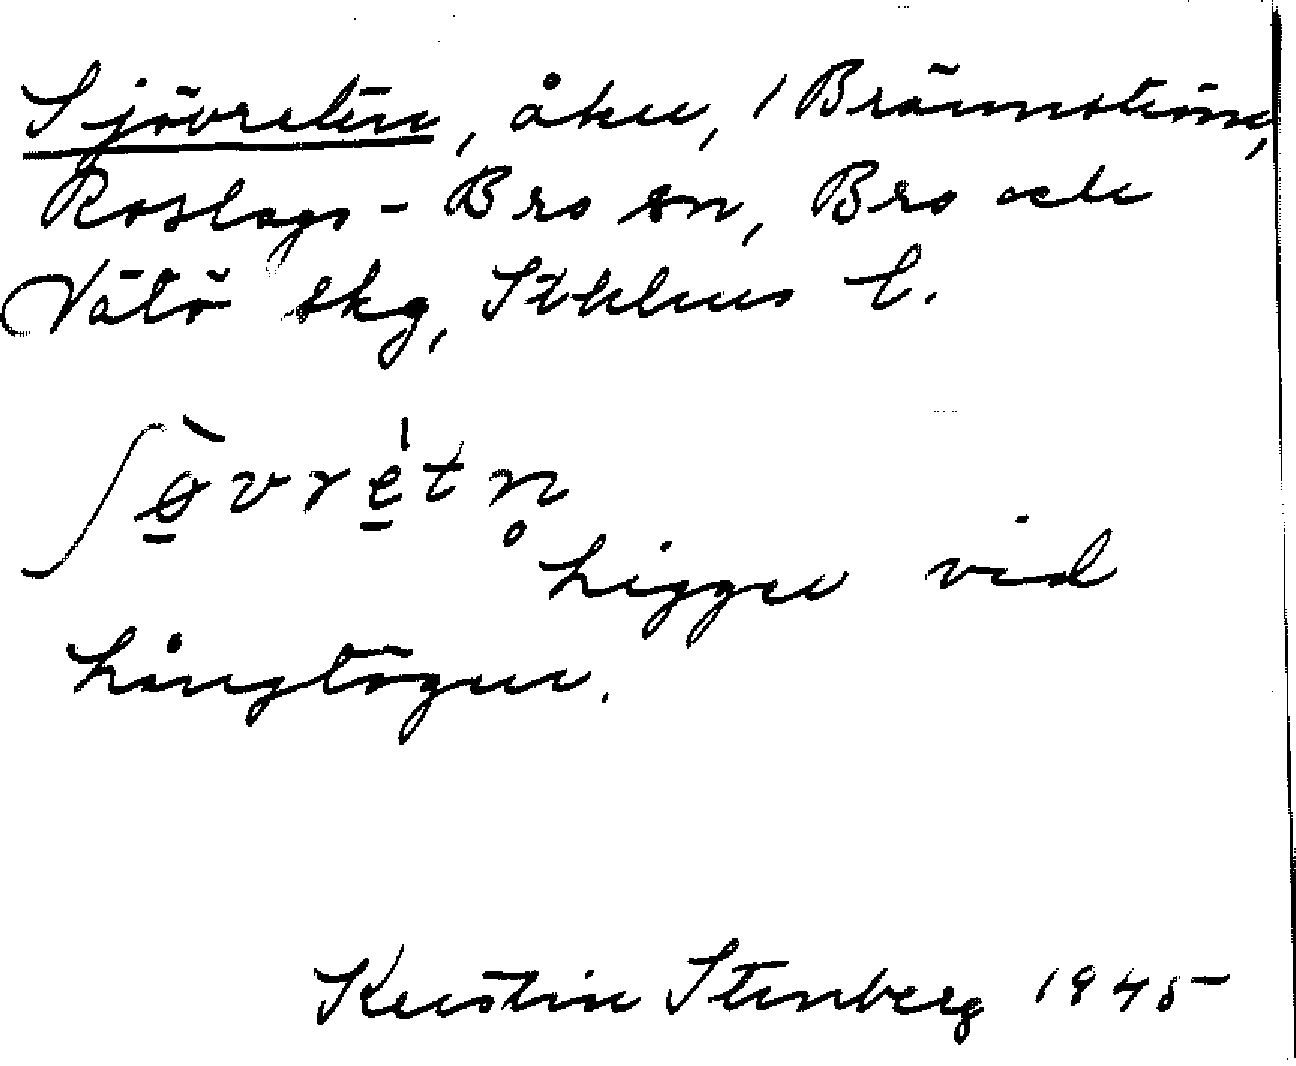 Sjövreten, åker, / Brännström,
Roslags-Bro sn, Bro och
Vätö skg, Sthlms l.
ʃø̠̀vre̠̍tn̥
Ligger vid
Långtögen.
Kerstin Stenberg 1945